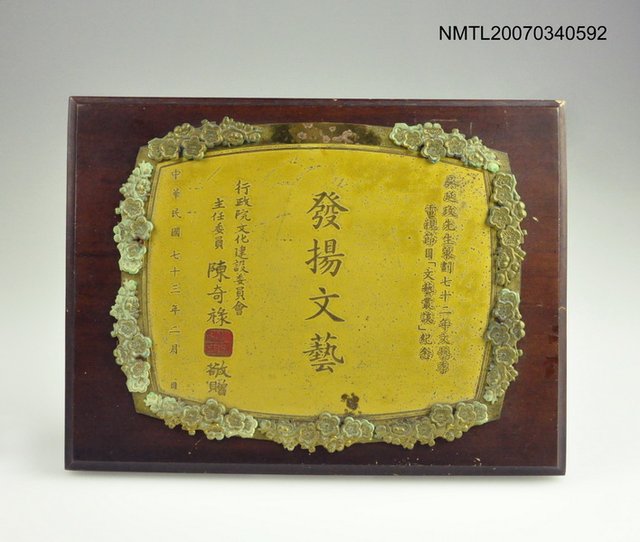 NMTL20070340592
先生策劃七十二年文藝季
電視節目「文藝叢談」紀念
發揚文藝
行政院文化建設委員會
主任委員 陳奇祿
敬贈
中華民國七十三年二月 日